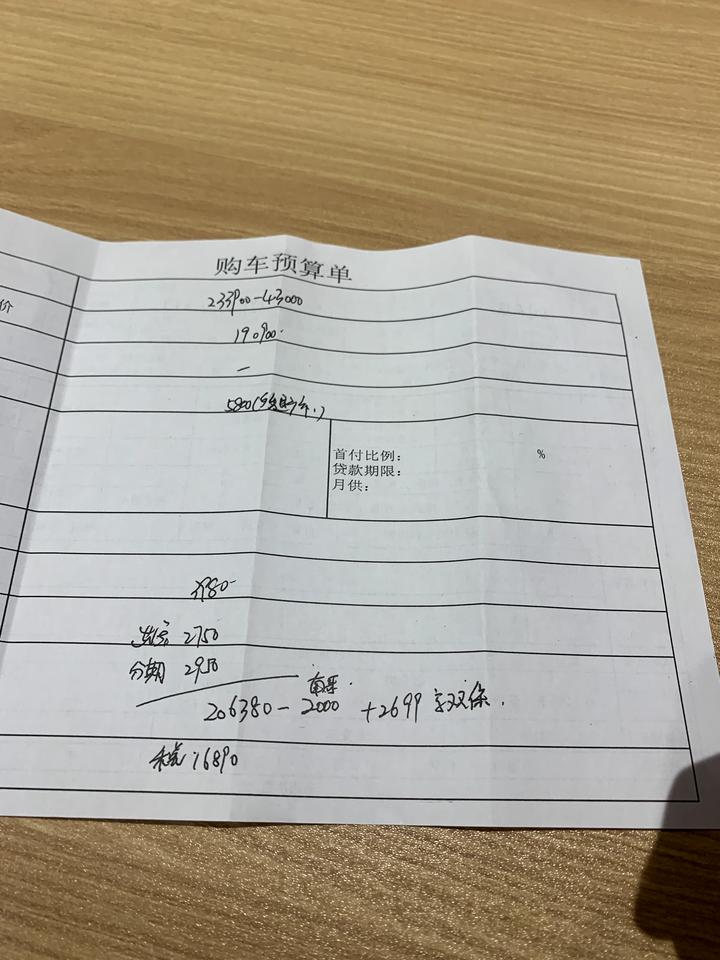 购车预算单
价
233900-43000
190900.
—
5800(
首付比例： %
贷款期限：
月供：
3980-
2750
分期 2950
206380-2000 +2699 双保.
16890